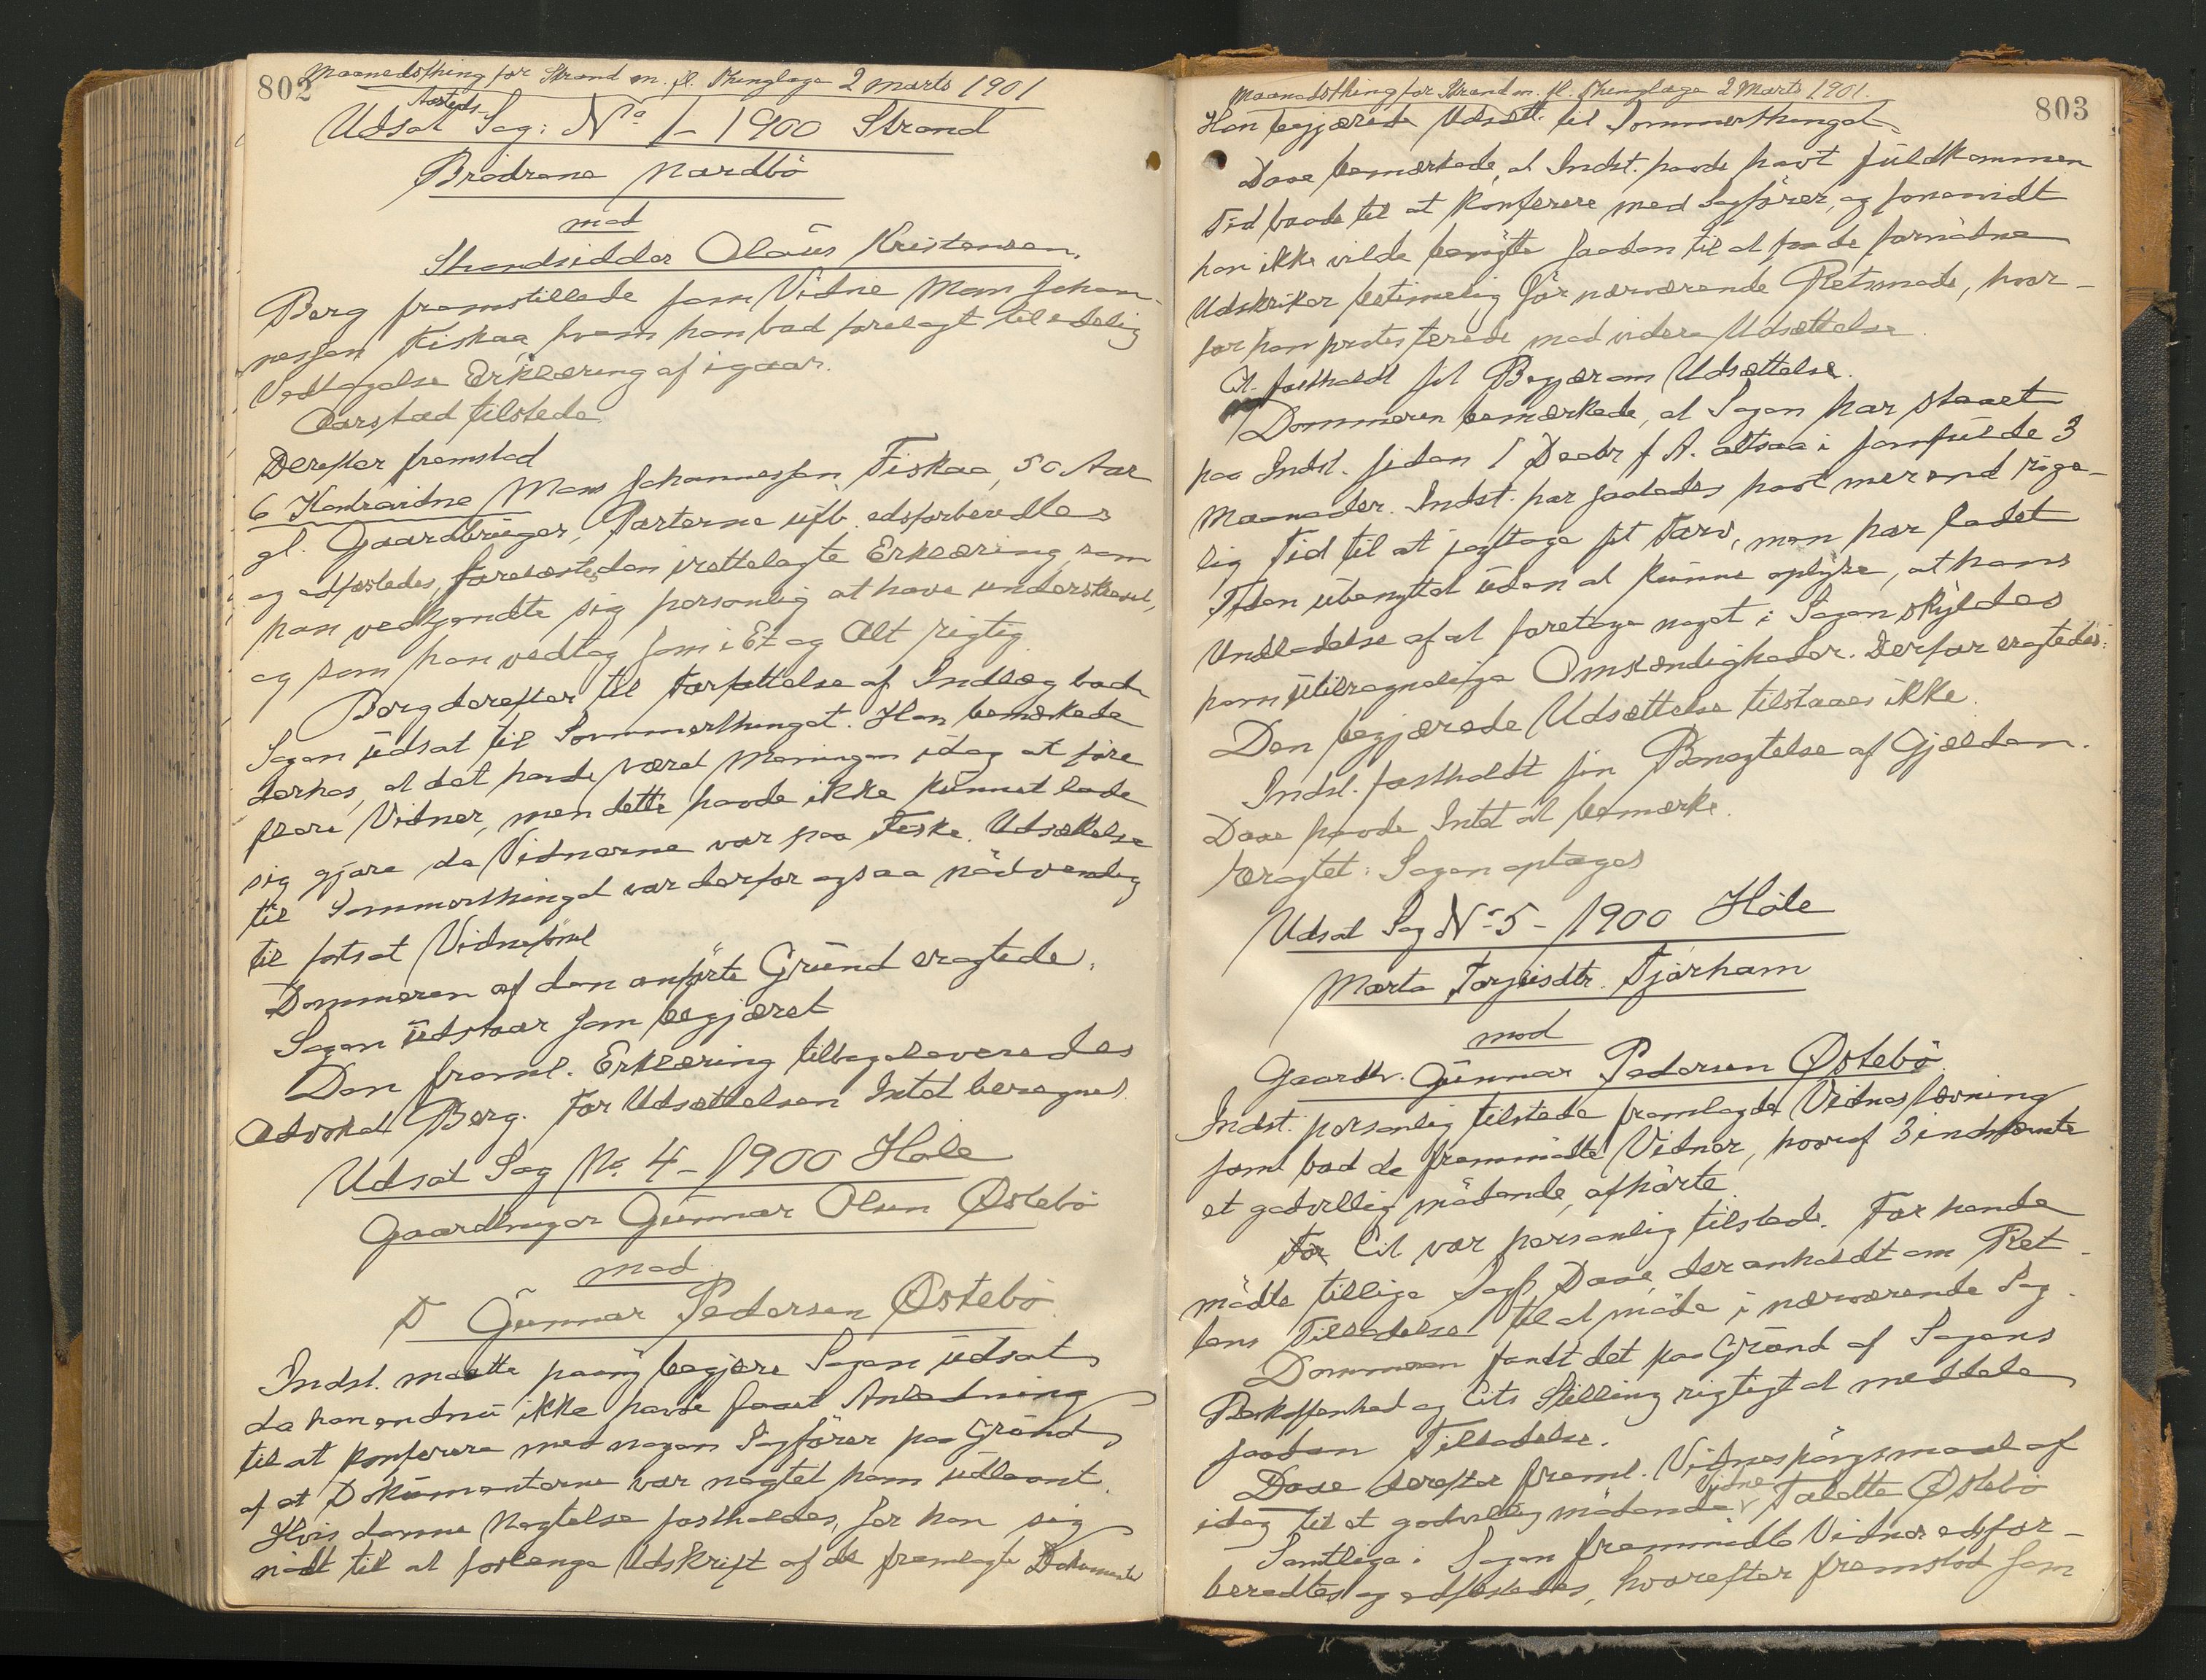 802
Maanedsthing for Strand m. fl. Thinglage 2 Marts 1901
Aasteds
Udsat Sag: No 1 - 1900 Strand
Brödrene Nordbö
mod
Strandsidder Olaus Kristensen.
Berg fremstillede som Vidne Mons Johan-
nessen Fiskaa hvem han bad forelagt til edelig
Vedtagelse Erklæring af igaar.
Aarstad tilstede
Derefter fremstod
6 Kontravidne Mons Johannessen Fiskaa, 50 Aar
gl. Gaardbruger, Parterne üb. edsforberedtes
og edfæstedes, forelæstes den irettelagte Erklæring, som
han vedkjendte sig personlig at have underskrevet,
og som han vedtog som i Et og Alt rigtig.
Berg derefter til Forfattelse af Indlæg bad
Sagen üdsat til Sommerthinget. Han bemærkede
derhos, at det havde været Meningen idag at före
flere Vidner, men dette havde ikke künnet lade
sig gjøre da Vidnerne var paa Fiske. Udsættelse
til Sommerthinget var derfor ogsaa nödvendig
til fortsat Vidneförsel
Dommeren af den anførte Gründ eragtede.
Sagen üdstaar som begjæret
Den freml. Erklæring tilbageleveredes
Advokat Berg. For Udsættelsen Intet beregnet
Udsat Sag No. 4 - 1900 Höle
Gaardbruger Günnar Olsen Østebö
mod
D Günnar Pedersen Østebö
Indst. maatte paany begjære Sagen üdsat
da han endnü ikke havde faaet Anledning
til at konferere med nogen Sagförer paa Gründ
af at Dokümenterne var negtet ham üdlaant.
Hvis denne Negtelse fastholdes, ser han sig
nödt til at forlange Udskrift af de fremlagte Dokumenter
Maanedsthing for Strand m. fl. Thinglage 2 Marts 1901.
803
Han begjærede Udsætt. til Sommerthinget.
Daae bemærkede, at Indst. havde havt füldkommen
Tid baade til at konferere med Sagfører, og forsaavidt
han ikke vilde benytte saadan til at faa de fornödne
Udskrifter betimelig för nærværende Retsmøde, hvor-
for han protesterede mod videre Udsættelse.
Ct. fastholdt sit Begjær om Udsættelse.
Dommeren bemærkede, at Sagen har staaet
paa Indst. siden 1 Decbr f A. altsaa i samfülde 3
Maaneder. Indst. har saaledes havt mer end rige-
lig Tid til at iagttage sit Tarv, men har ladet
Tiden übenyttet üden at künne oplyse, at hans
Undladelse af at foretage noget i Sagen skyldes
ham ütilregnelige Omstændigheder. Derfor eragtedes:
Den begjærede Udsættelse tilstaaes ikke.
Indst. fastholdt sin Benegtelse af Gjælden.
Daae havde Intet at bemærke.
Eragtet: Sagen optages
Udsat Sag No 5 - 1900 Höle
Marta Torjüsdtr. Tjörham
mod
Gaardbr. Günnar Pedersen Østebö
Indst. personlig tilstede fremlagde Vidnestævning
samt bad de fremmödte Vidner, hvoraf 3 indstævnte
et godvillig mödende, afhörte
For Cit var personlig tilstede. For hende
mödte tillige Sagf. Daae, der anholdt om Ret-
tens Tilladelse til at møde i nærværende Sag.
Dommeren fandt det paa Gründ af Sagens
Beskaffenhed og Cits Stilling rigtigt at meddele
saadan Tilladelse.
Daae derefter freml. Vidnespörgsmaal af
idag til et godvillig mödende Vidne Talette Østebö
Samtlige i Sagen fremmødte Vidner edsfor-
beredtes og edfæstedes, hvorefter fremstod som